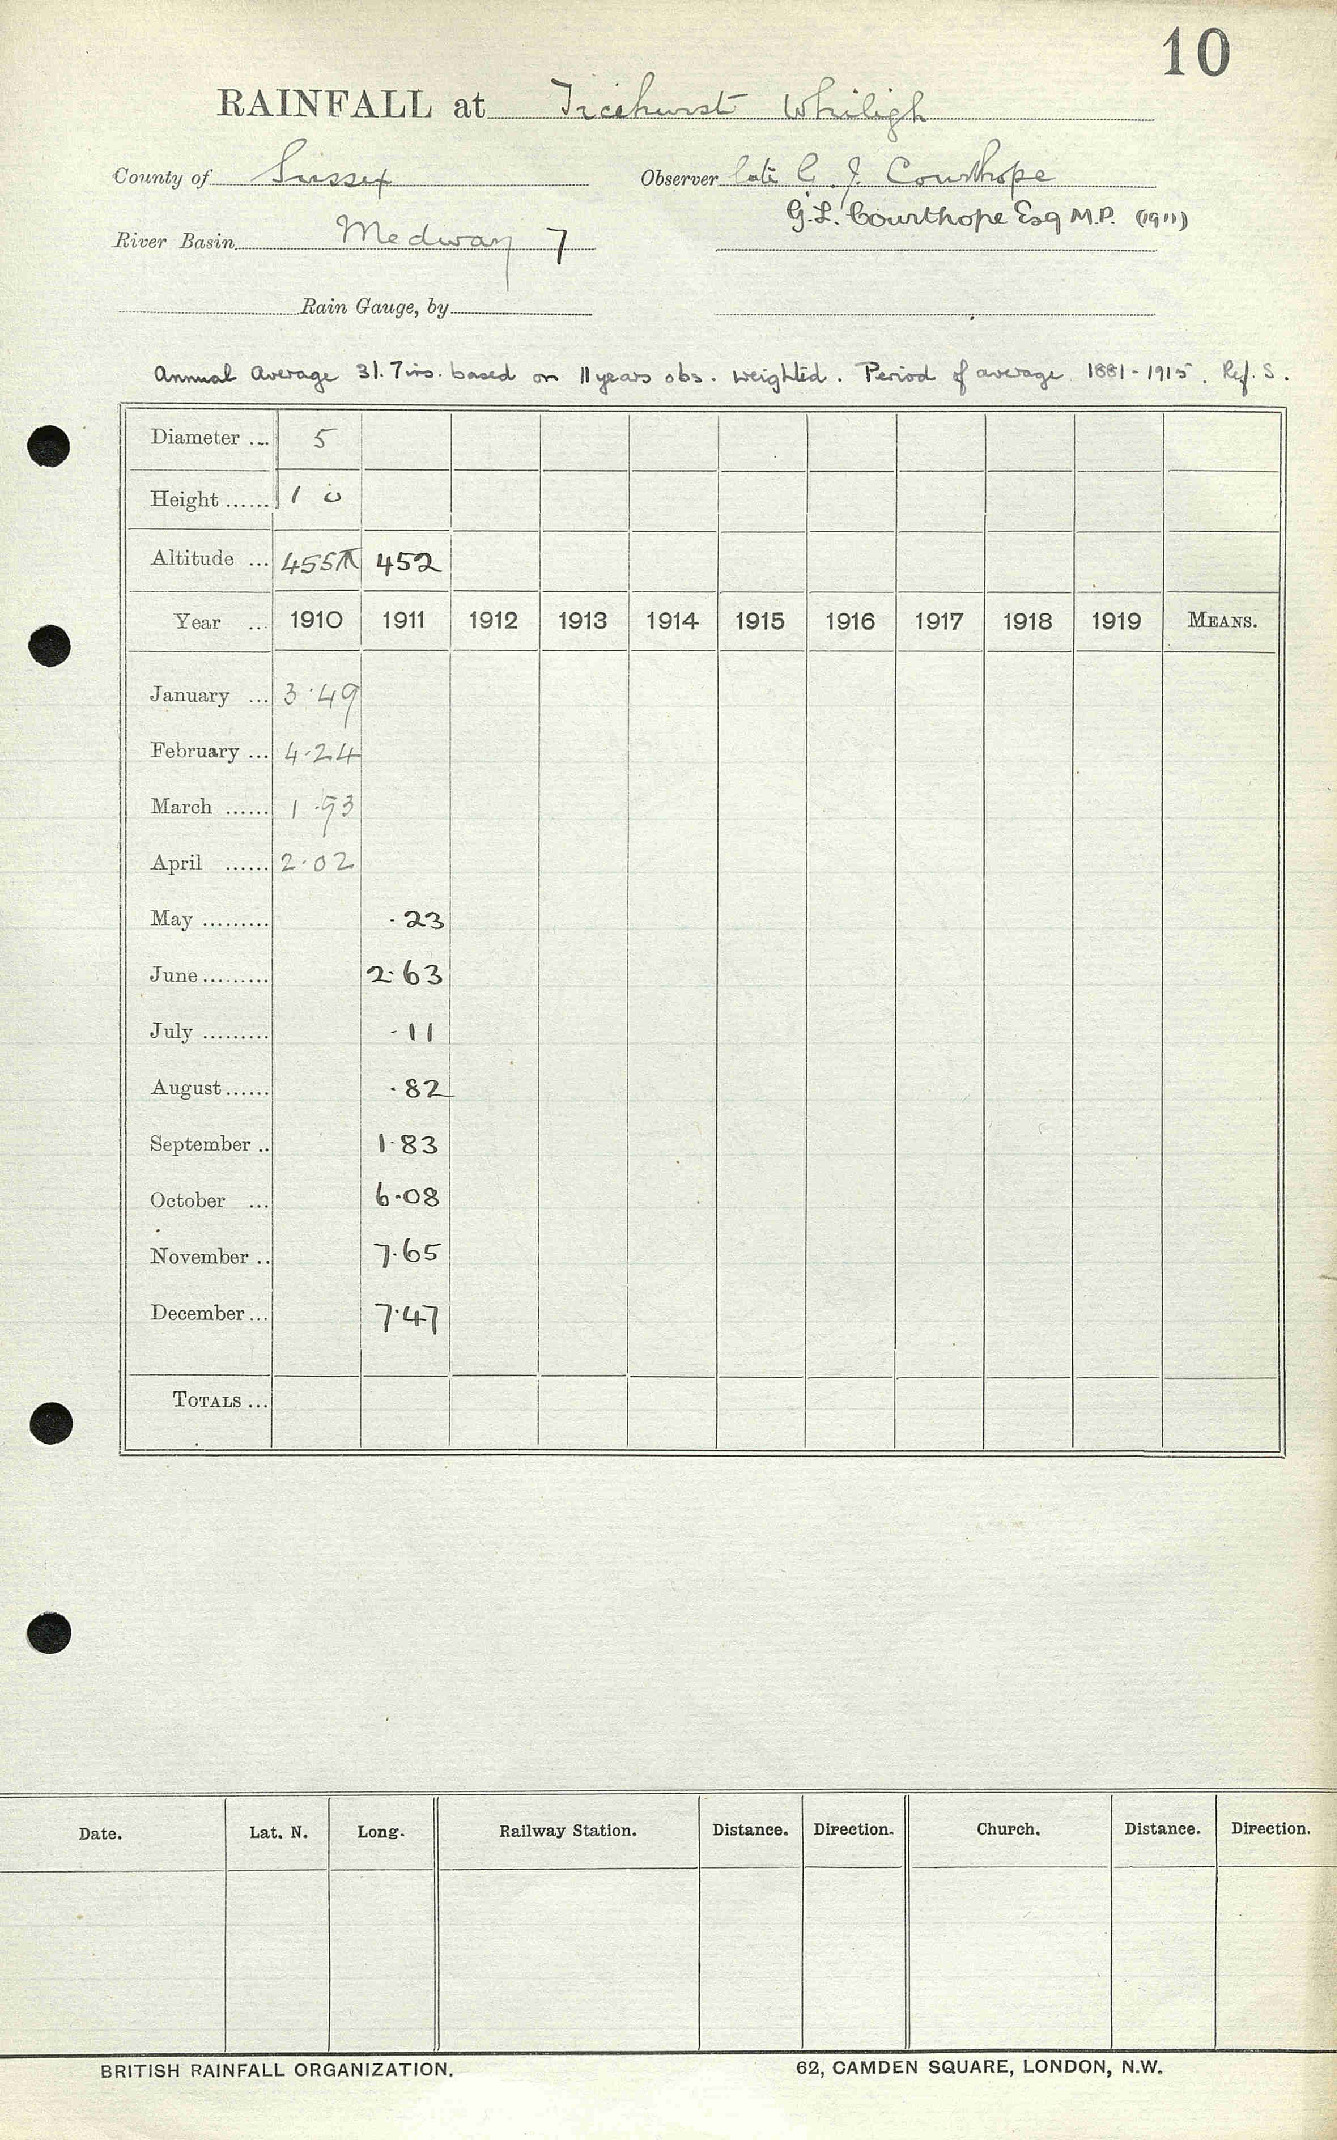 10
RAINFALL at Ticehurst Whiligh
County of Sussex Observer late G. J. Courthope
G.L. Courthope Esq M.P. (1911)
River Basin Medway 7
Rain Gauge, by
Annual Average 31.7 ins. based on 11 years obs. weighted. Period of average 1881-1915. Ref. S.
Diameter ... 5
Height ...... 1 0
Altitude ... 455 452
Year ... 1910 1911 1912 1913 1914 1915 1916 1917 1918 1919 MEANS.
January ... 3.49
February ... 4.24
March ...... 1.93
April ...... 2.02
May ......... .23
June ......... 2.63
July ......... .11
August ...... .82
September .. 1.83
October ... 6.08
November .. 7.65
December ... 7.47
TOTALS ...
Date. Lat. N. Long. Railway Station. Distance. Direction. Church. Distance. Direction.
BRITISH RAINFALL ORGANIZATION. 62, CAMDEN SQUARE, LONDON, N.W.